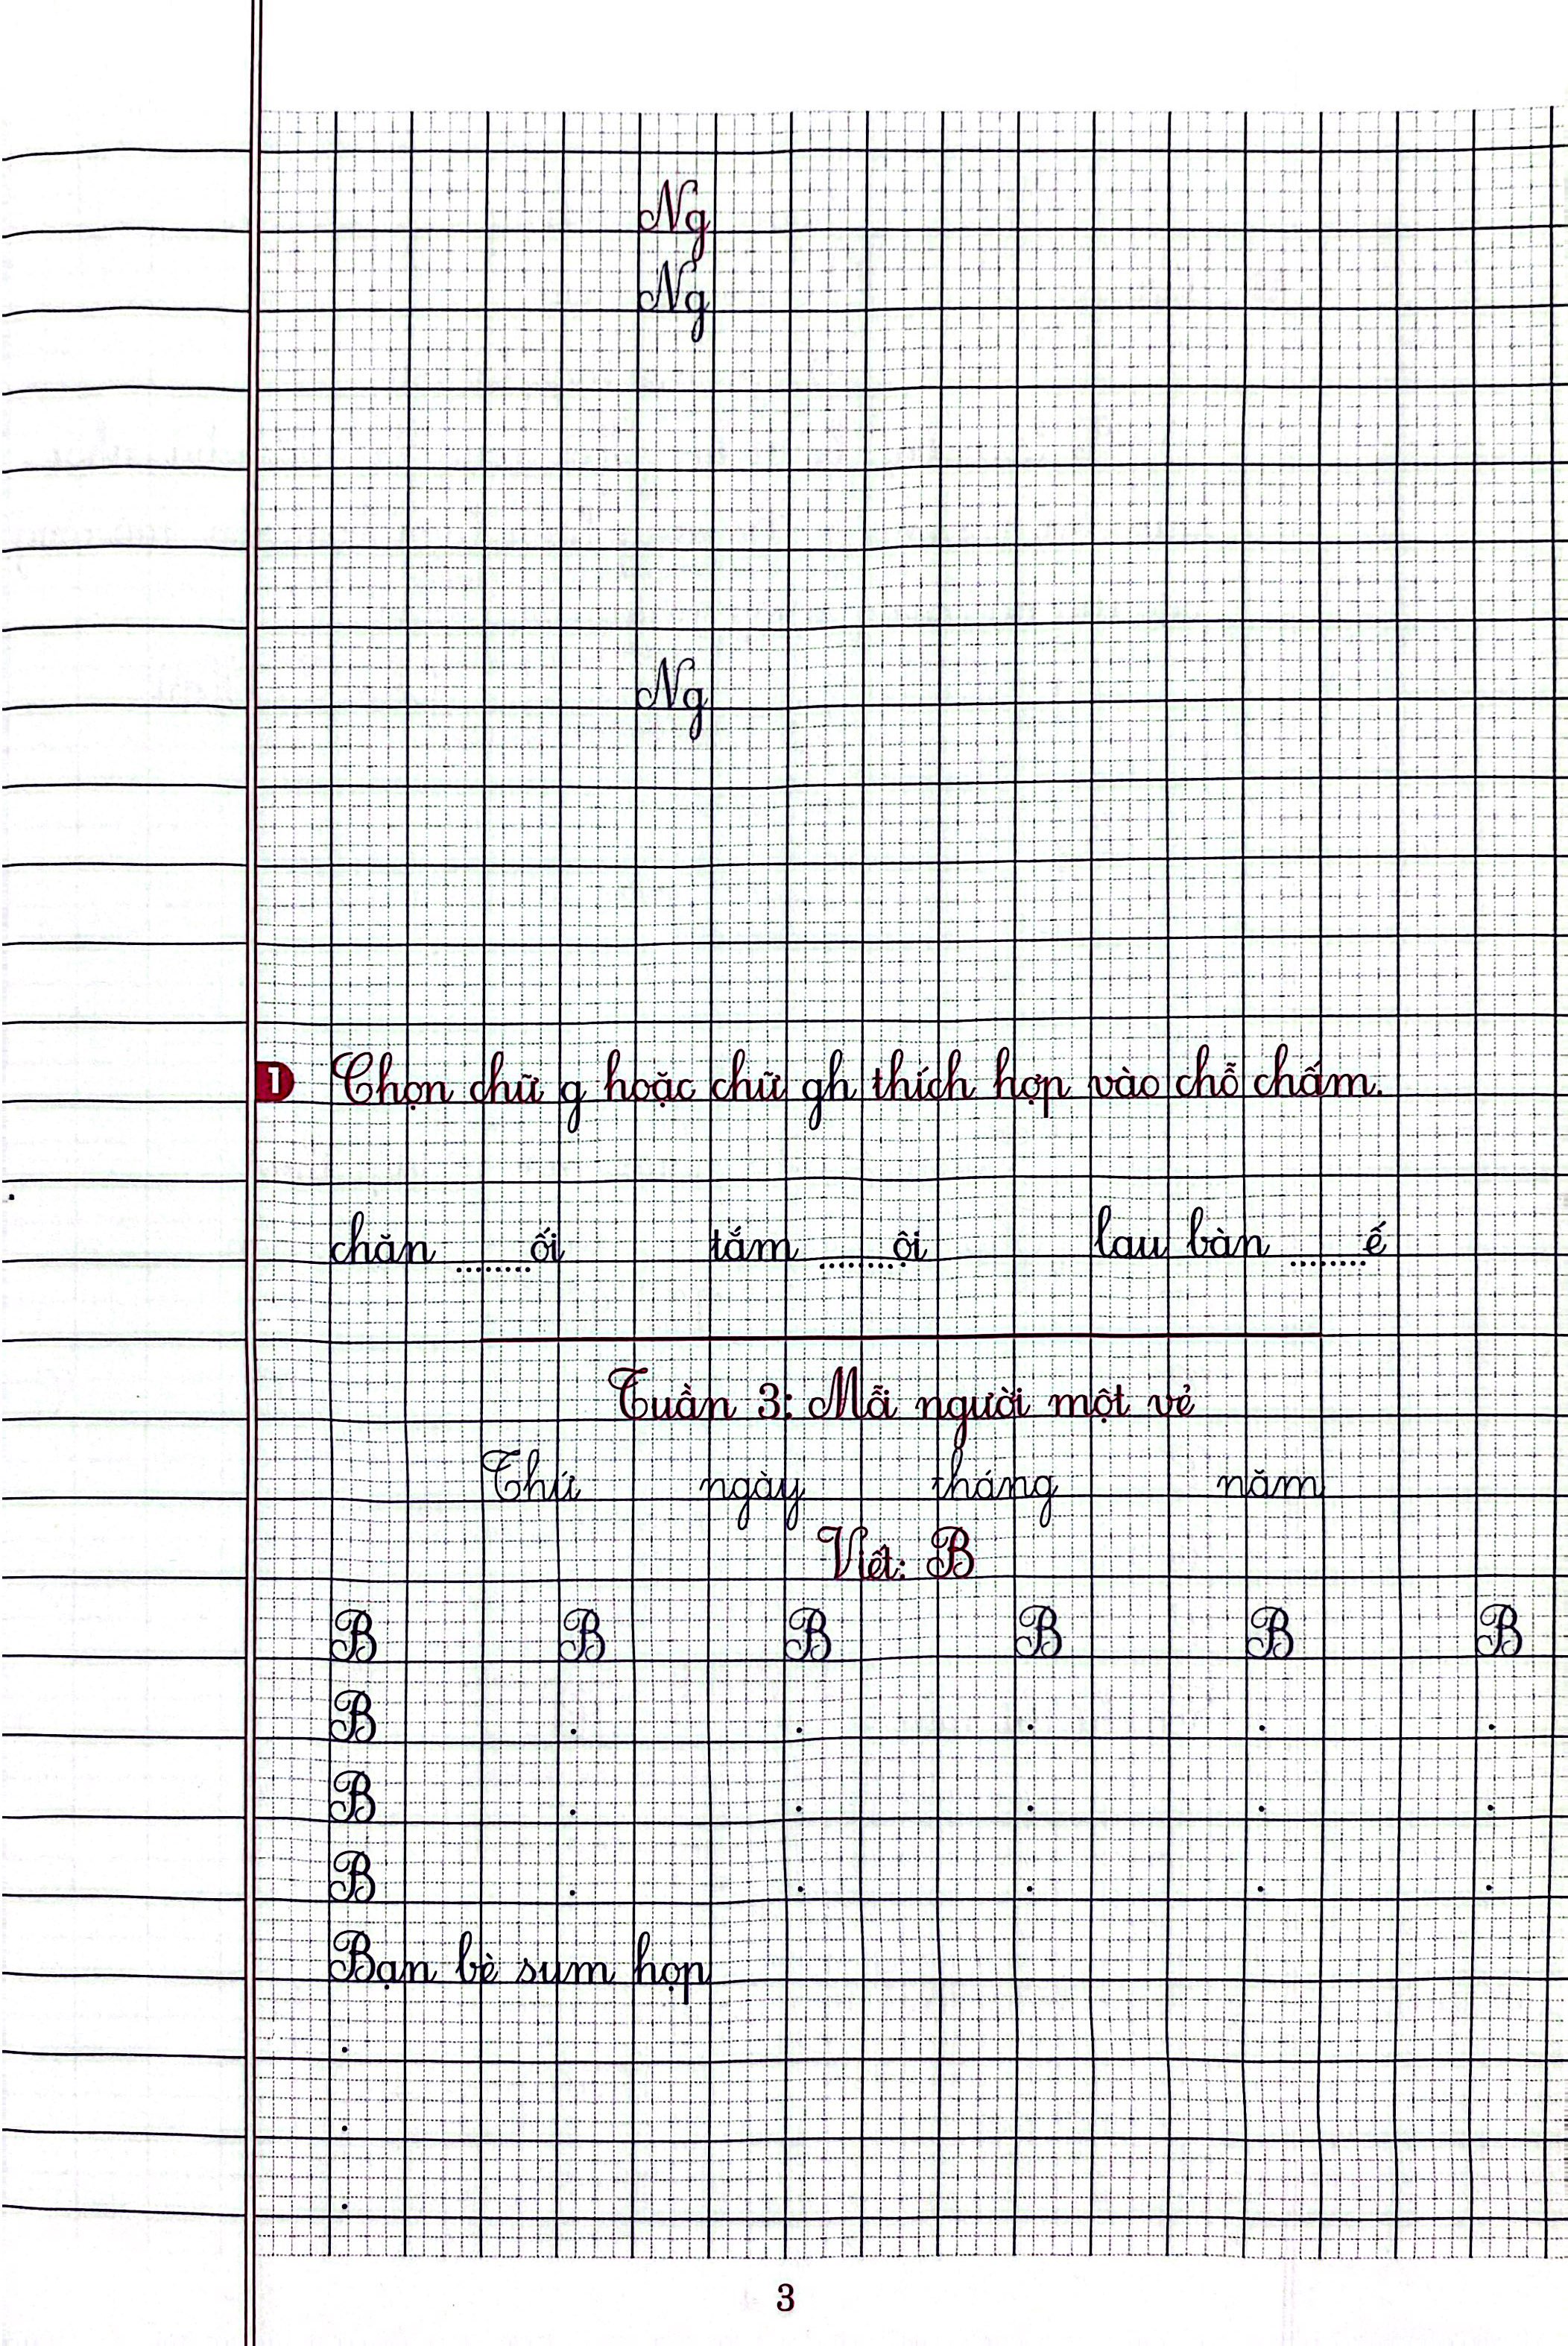 Ng
Ng
Ng
1 Chọn chữ g hoặc chữ gh thích hợp vào chỗ chấm.
chăn ........ối tắm ........ội lau bàn ........ế
Tuần 3: Mỗi người một vẻ
Thứ ngày tháng năm
Viết: B
B B B B B B
B . . . . .
B . . . . .
B . . . . .
Bạn bè sum họp
.
.
.
3